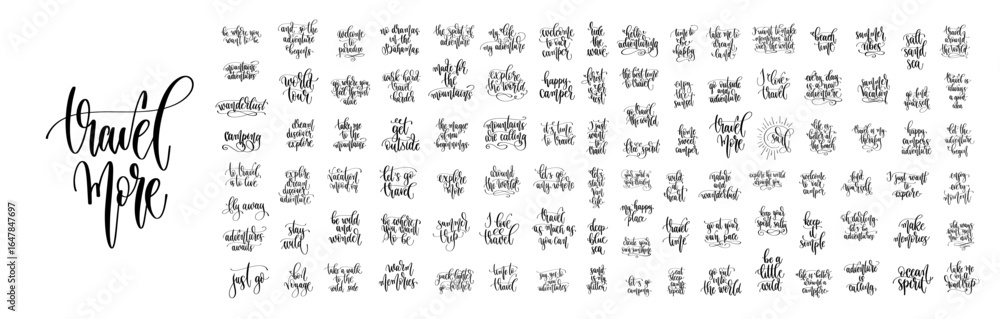 travel
more
be where you
want to be
and so the
adventure
begins
welcome
to
paradise
no dramas
in the
Bahamas
the spirit of
adventure
life
is
my adventure
welcome
to our
camper
ride
the
wave
hello
adventuring
time
to be
happy
take me
to
dream
land
I want to make
memories all
over the world
beach
time
summer
vibes
salt
sand
sea
travel
around
the world
mountains
adventures
world
tour
go where you
feel the most
alive
wish hard
travel
harder
made for
the
mountains
explore
the world
happy
camper
the best time
to travel
enjoy
the
sunset
go outside
and
adventure
I love
travel
every day
is a new
adventure
summer
holiday
go find
yourself
travel is
always
a good
idea
wanderlust
go travel
the world
camping
dream
discover
explore
take me
to the
mountains
get
outside
the magic
of new
beginnings
mountains
are calling
it's time
to travel
I just
want to
travel
free spirit
home
sweet
camper
travel
more
sail
life is
better at
the beach
travel is my
therapy
happy
campers
adventure
let the
adventure
begin
to travel
is to live
explore
dream
discover
vacation
mood on
let's go
travel
explore
more
around
the world
let's go
any where
let's
start
your
life
wild
heart
nature
and
wanderlust
explore the world
around you
welcome
to our
camper
find
yourself
I just want
to explore
enjoy
every
moment
fly away
stay
wild
be wild
and
wonder
be where
you want
to be
summer
trip
I love
travel
travel
as much as
you can
deep
blue
sea
my happy
place
travel
time
go at your
own pace
keep your
spirit
salty
keep
it
simple
oh darling
let's be
adventurers
make
memories
adventures
awaits
create your
own sunshine
just go
bon
voyage
take a walk
to the
wild side
warm
memories
pack lighter
go further
time to
travel
say yes to
new
adventures
let's go
camping
eat
sleep
camp
repeat
go out
into
the world
be a
little
wild
life is better
around a
campfire
adventure
is
calling
ocean
spirit
take me
on
road trip
Adobe Stock | #1647847697